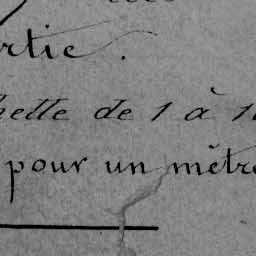 rtie.
helle de 1 à 1
pour un mètre